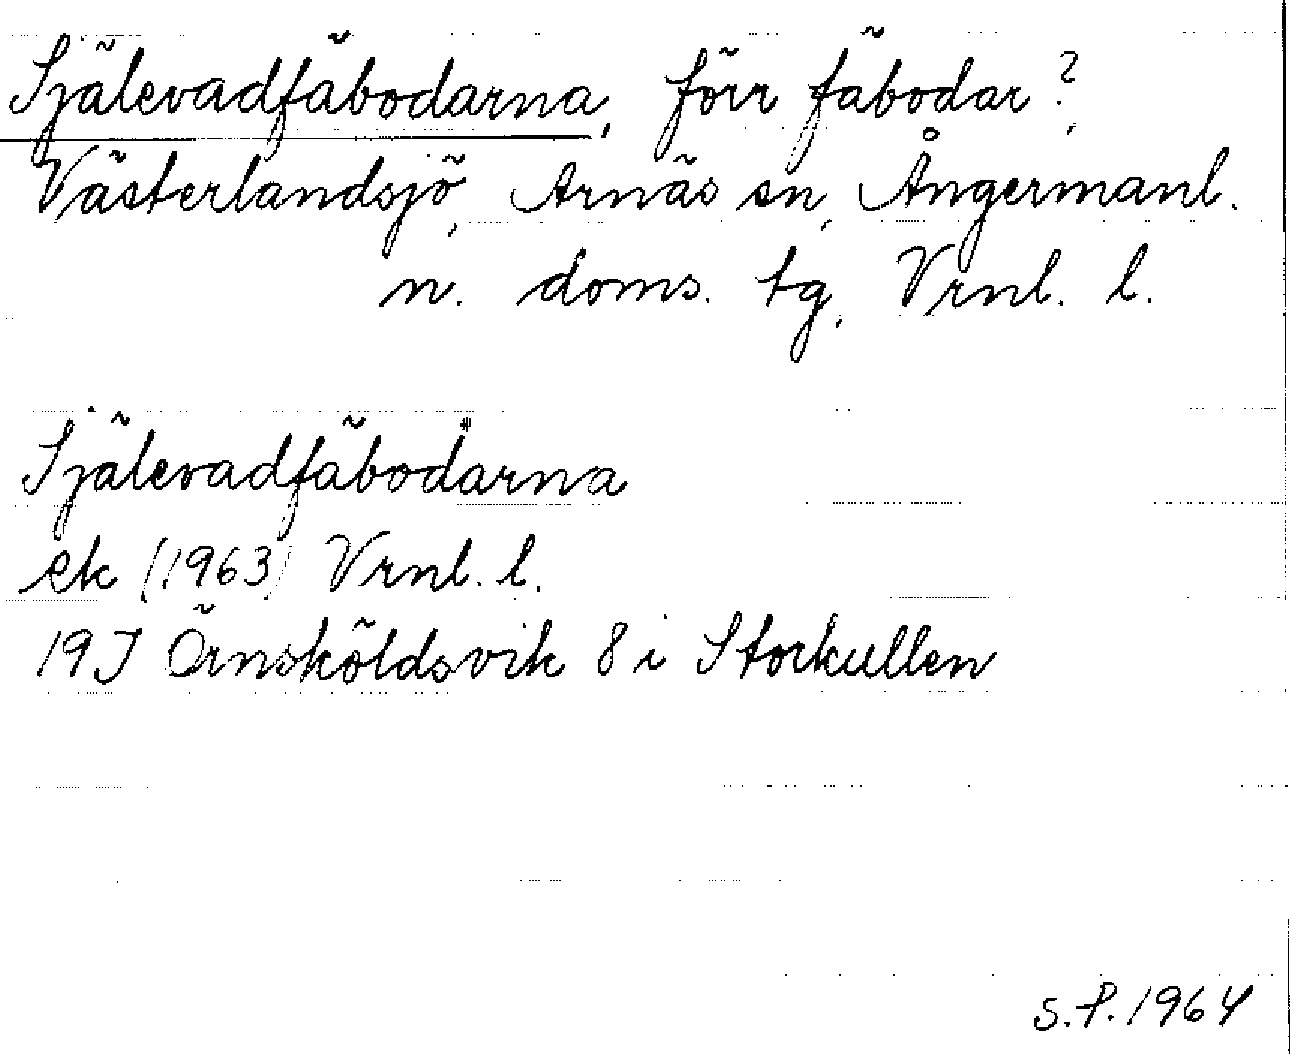 Själevadfäbodarna, förr fäbodar?,
Västerlandsjö, Arnäs sn, Ångermanl.
n. doms. tg, Vrnl. l.
Själevadfäbodarna
ek (1963) Vrnl. l.
19J Örnsköldsvik 8 i Storkullen
S.P. 1964